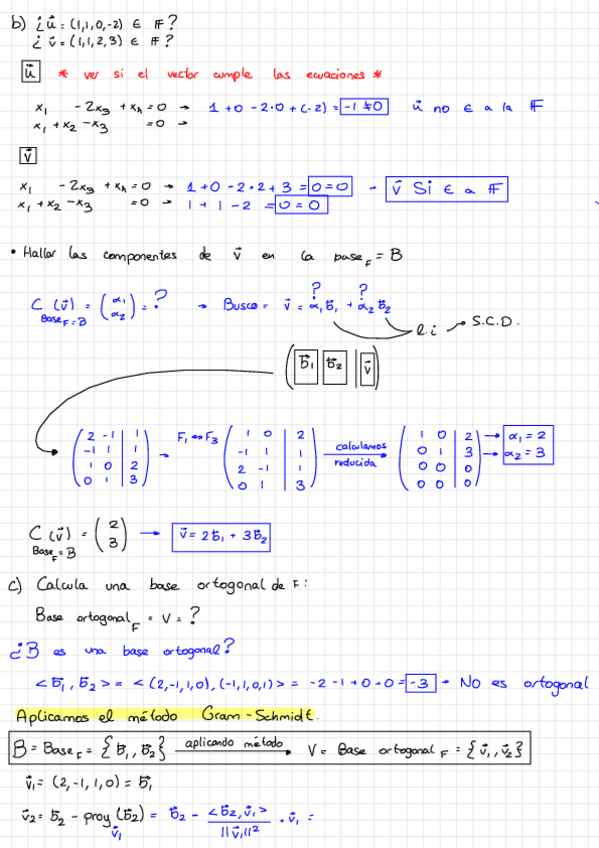 b) ¿ū⃗ : (1,1,0,-2) ∈ F?
¿ v⃗ = (1,1,2,3) ∈ F?
u⃗ * ver si el vector cumple las ecuaciones *
x₁ - 2x₃ + x₄ = 0 → 1+0-2·0+(-2) = -1 ≠ 0 u⃗ no ∈ a la F
x₁ + x₂ - x₃ = 0 →
v⃗
x₁ - 2x₃ + x₄ = 0 → 1+0-2·2+3 = 0=0 - v⃗ Si ∈ a F
x₁ + x₂ - x₃ = 0 → 1 + 1 - 2 = 0=0
• Hallar las componentes de v⃗ en la base_F = B
C_{Base_F = B} (v⃗) = (α₁ α₂) = ? → Busco = v⃗ = α₁ b⃗₁ + α₂ b⃗₂
? ?
l.i → S.C.D.
( b⃗₁ b⃗₂ | v⃗ )
( 2 -1 | 1 ) F₁ ↔ F₃ ( 1 0 | 2 ) calculamos ( 1 0 | 2 ) → α₁ = 2
( -1 1 | 1 ) → ( -1 1 | 1 ) reducida ( 0 1 | 3 ) → α₂ = 3
( 1 0 | 2 ) ( 2 -1 | 1 ) ( 0 0 | 0 )
( 0 1 | 3 ) ( 0 1 | 3 ) ( 0 0 | 0 )
C_{Base_F = B} (v⃗) = (2 3) → v⃗ = 2b⃗₁ + 3b⃗₂
c) Calcula una base ortogonal de F:
Base ortogonal_F = V = ?
¿B es una base ortogonal?
<b⃗₁, b⃗₂> = <(2,-1,1,0),(-1,1,0,1)> = -2-1+0+0 = -3 → No es ortogonal
Aplicamos el método Gram-Schmidt.
B = Base_F = {b⃗₁, b⃗₂} aplicando método → V = Base ortogonal_F = {v⃗₁, v⃗₂}
v⃗₁ = (2,-1,1,0) = b⃗₁
v⃗₂ = b⃗₂ - proy_{v⃗₁} (b⃗₂) = b⃗₂ - <b⃗₂, v⃗₁> / ||v⃗₁||² · v⃗₁ =